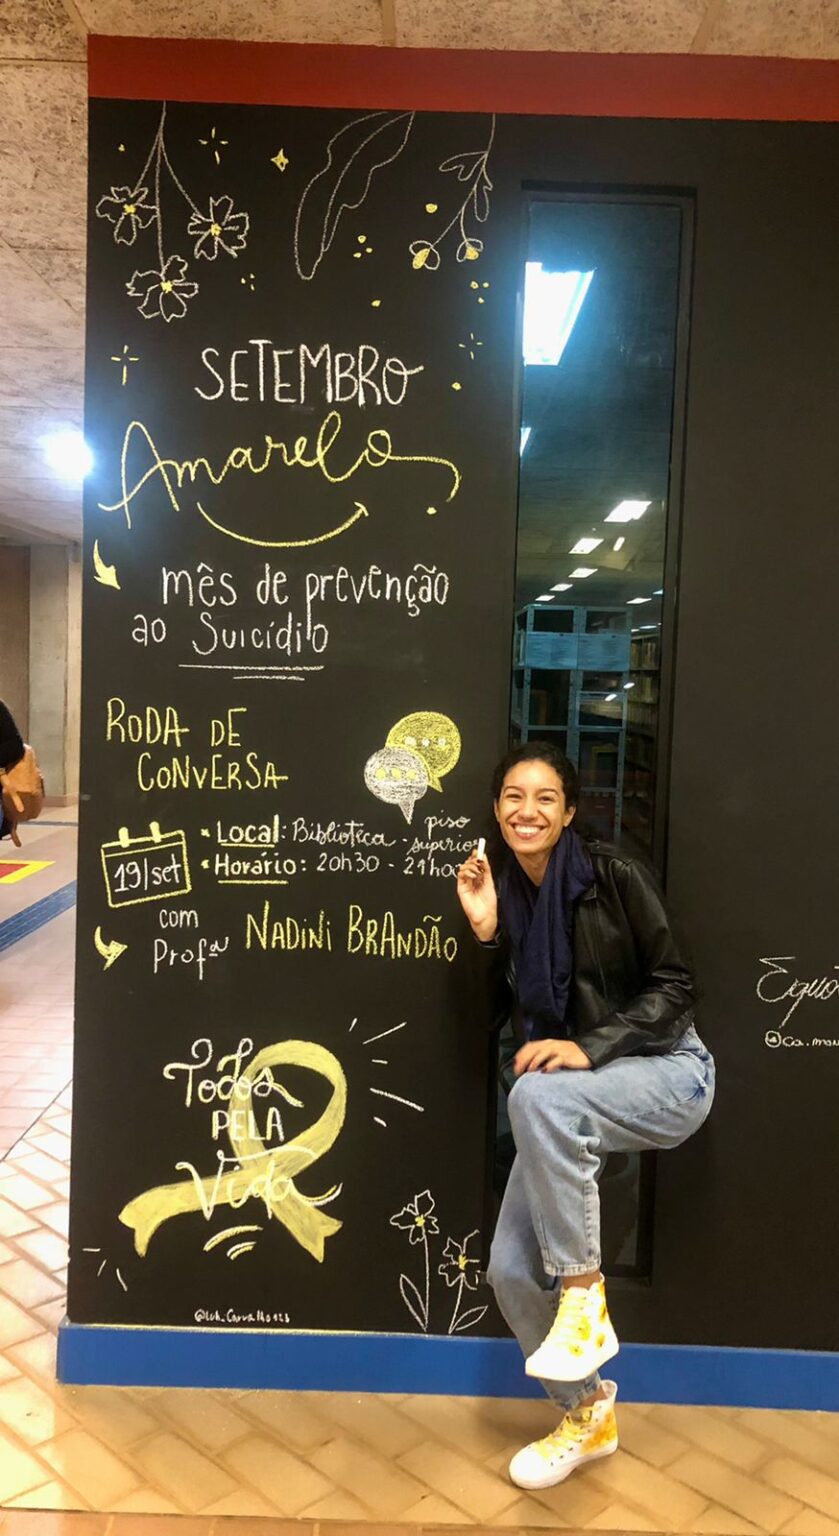 SETEMBRO
Amarelo
mês de prevenção
ao Suicídio
RODA DE
CONVERSA
19/set
• Local: Biblioteca - piso
superior
• Horário: 20h30 - 21h00
com
Profª NADINI BRANDÃO
Todos
PELA
Vida